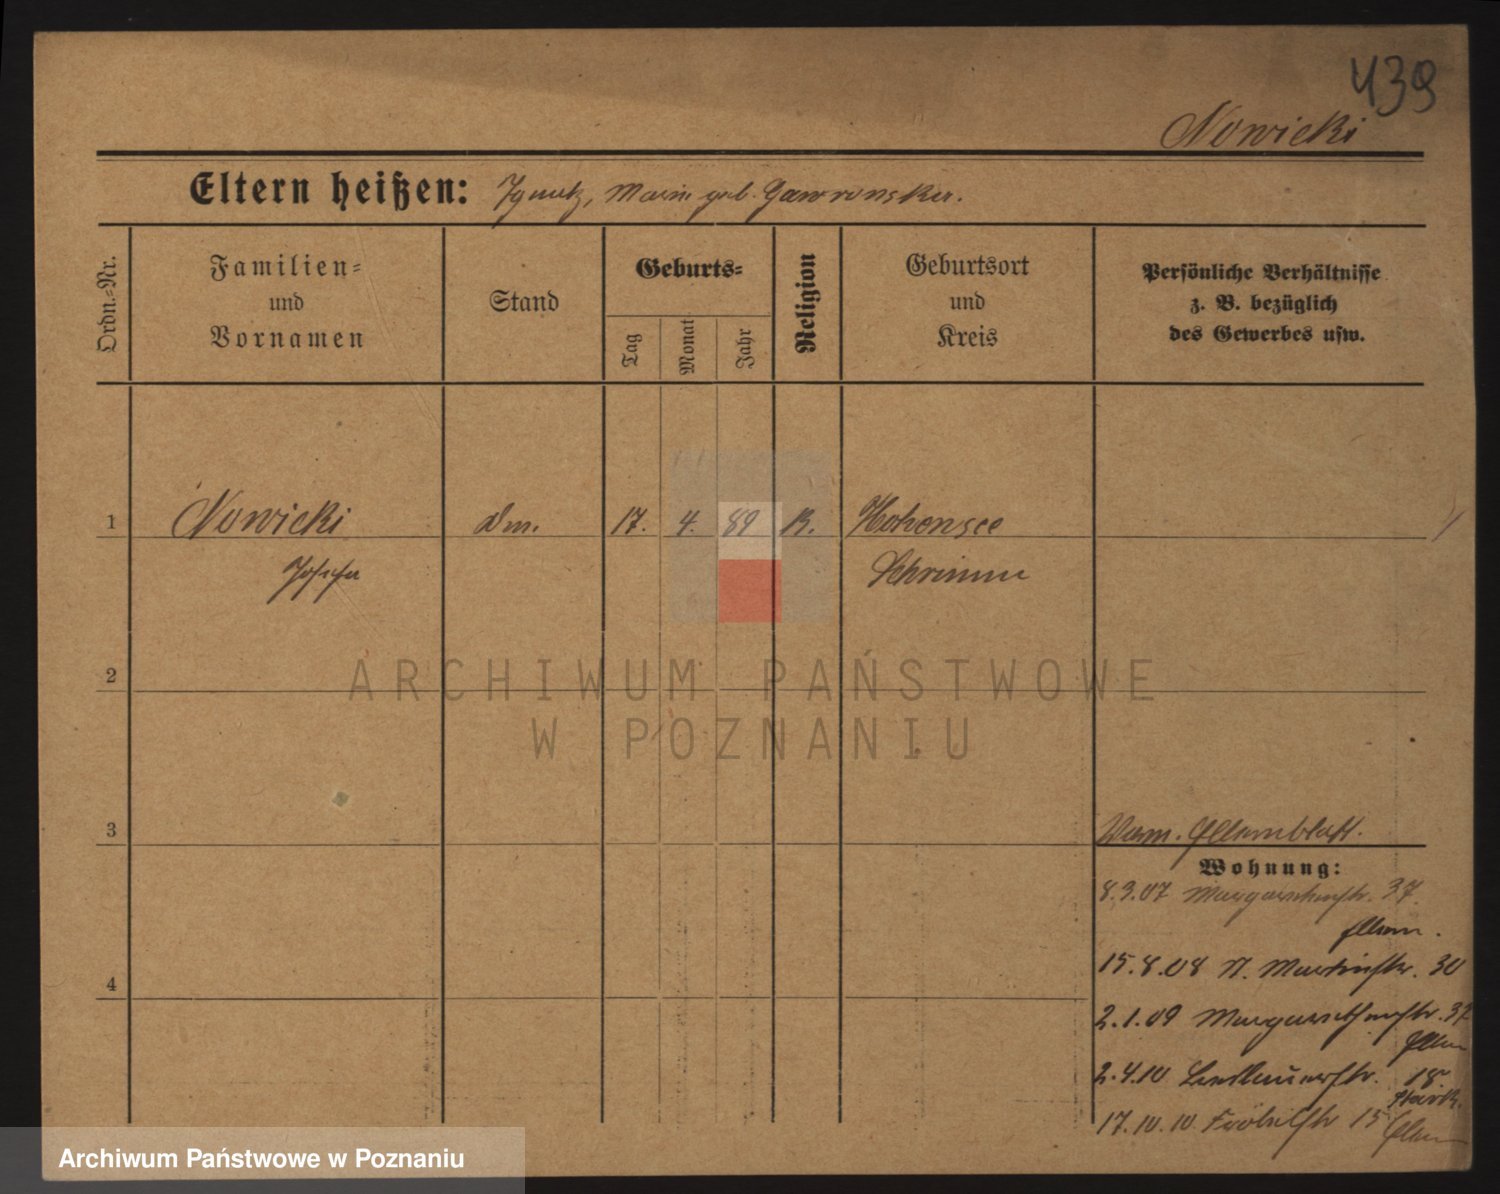 439
Nowicki
Eltern heißen: Ignatz, Marie geb. Gawronska.
Ordn.-Nr.
Familien-
und
Vornamen
Stand
Geburts-
Tag
Monat
Jahr
Religion
Geburtsort
und
Kreis
Persönliche Verhältnisse
z. B. bezüglich
des Gewerbes usw.
1 Nowicki 17. 4. 89 K. Hohensee
Josefa Schrimm
2
3
Elternblatt.
Wohnung:
8.3.07 Margarethenstr. 37.
Eltern.
15.8.08 St. Martinstr. 30
2.1.09 Margarethenstr. 37
Eltern
2.4.10 18.
4
17.10.10 Fröbelstr 15
Eltern
ARCHIWUM PAŃSTWOWE
W POZNANIU
Archiwum Państwowe w Poznaniu